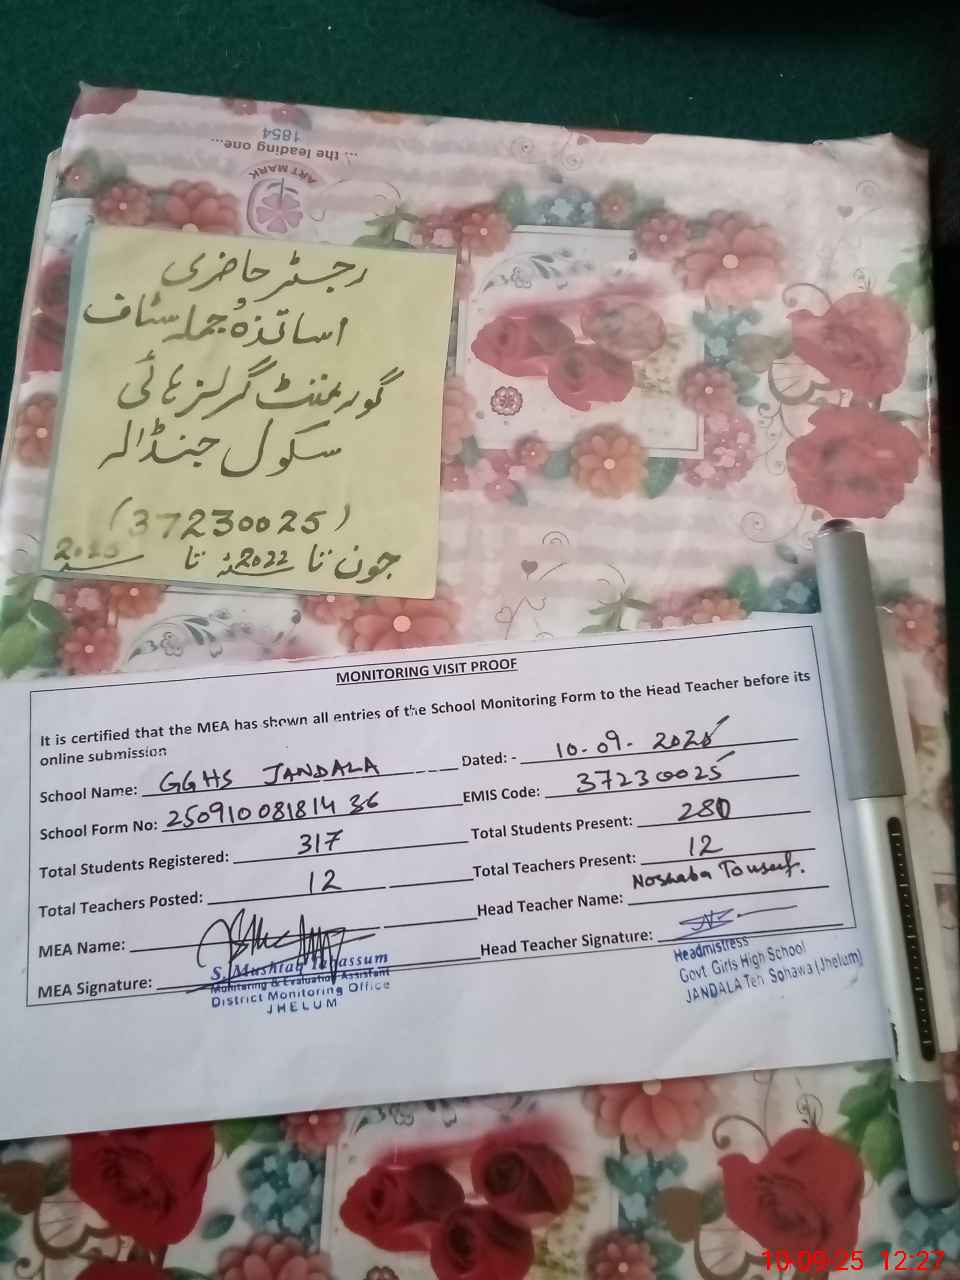 ... the leading one...
1854
ART MARK
رجسٹر حاضری
اساتذہ و جملہ سٹاف
گورنمنٹ گرلز ہائی
سکول جنڈالہ
(37230025)
جون تا 2022ء تا 2025
MONITORING VISIT PROOF
It is certified that the MEA has shown all entries of the School Monitoring Form to the Head Teacher before its
online submission
School Name: GGHS JANDALA Dated: - 10-09-2025
School Form No: 25091008181436 EMIS Code: 37230025
Total Students Registered: 317 Total Students Present: 280
Total Teachers Posted: 12 Total Teachers Present: 12
MEA Name: Head Teacher Name: Noshaba Tousuf.
MEA Signature: Head Teacher Signature:
S. Mushtaq Tabassum
Monitoring & Evaluation Assistant
District Monitoring Office
JHELUM
Headmistress
Govt. Girls High School
JANDALA Teh. Sohawa (Jhelum)
10-09-25 12:27